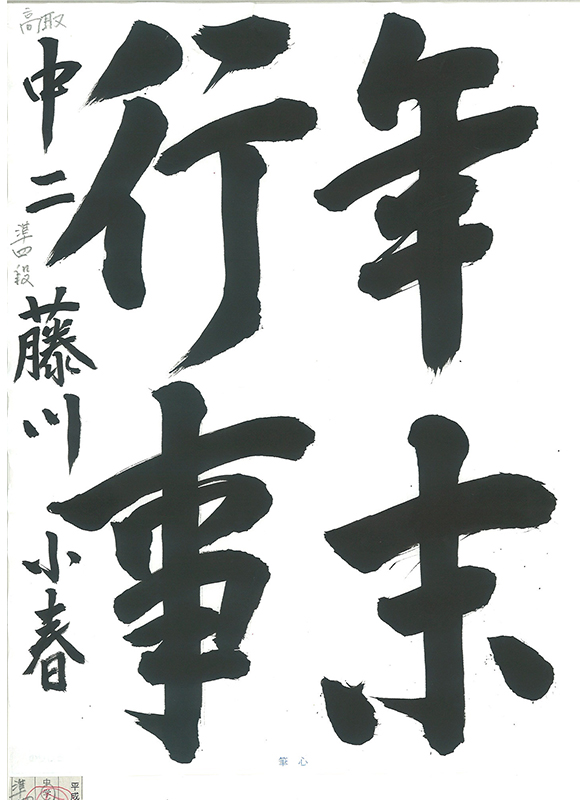 年末
行事
高取
中二
準四段
藤川小春
心筆
平成
中学
準四